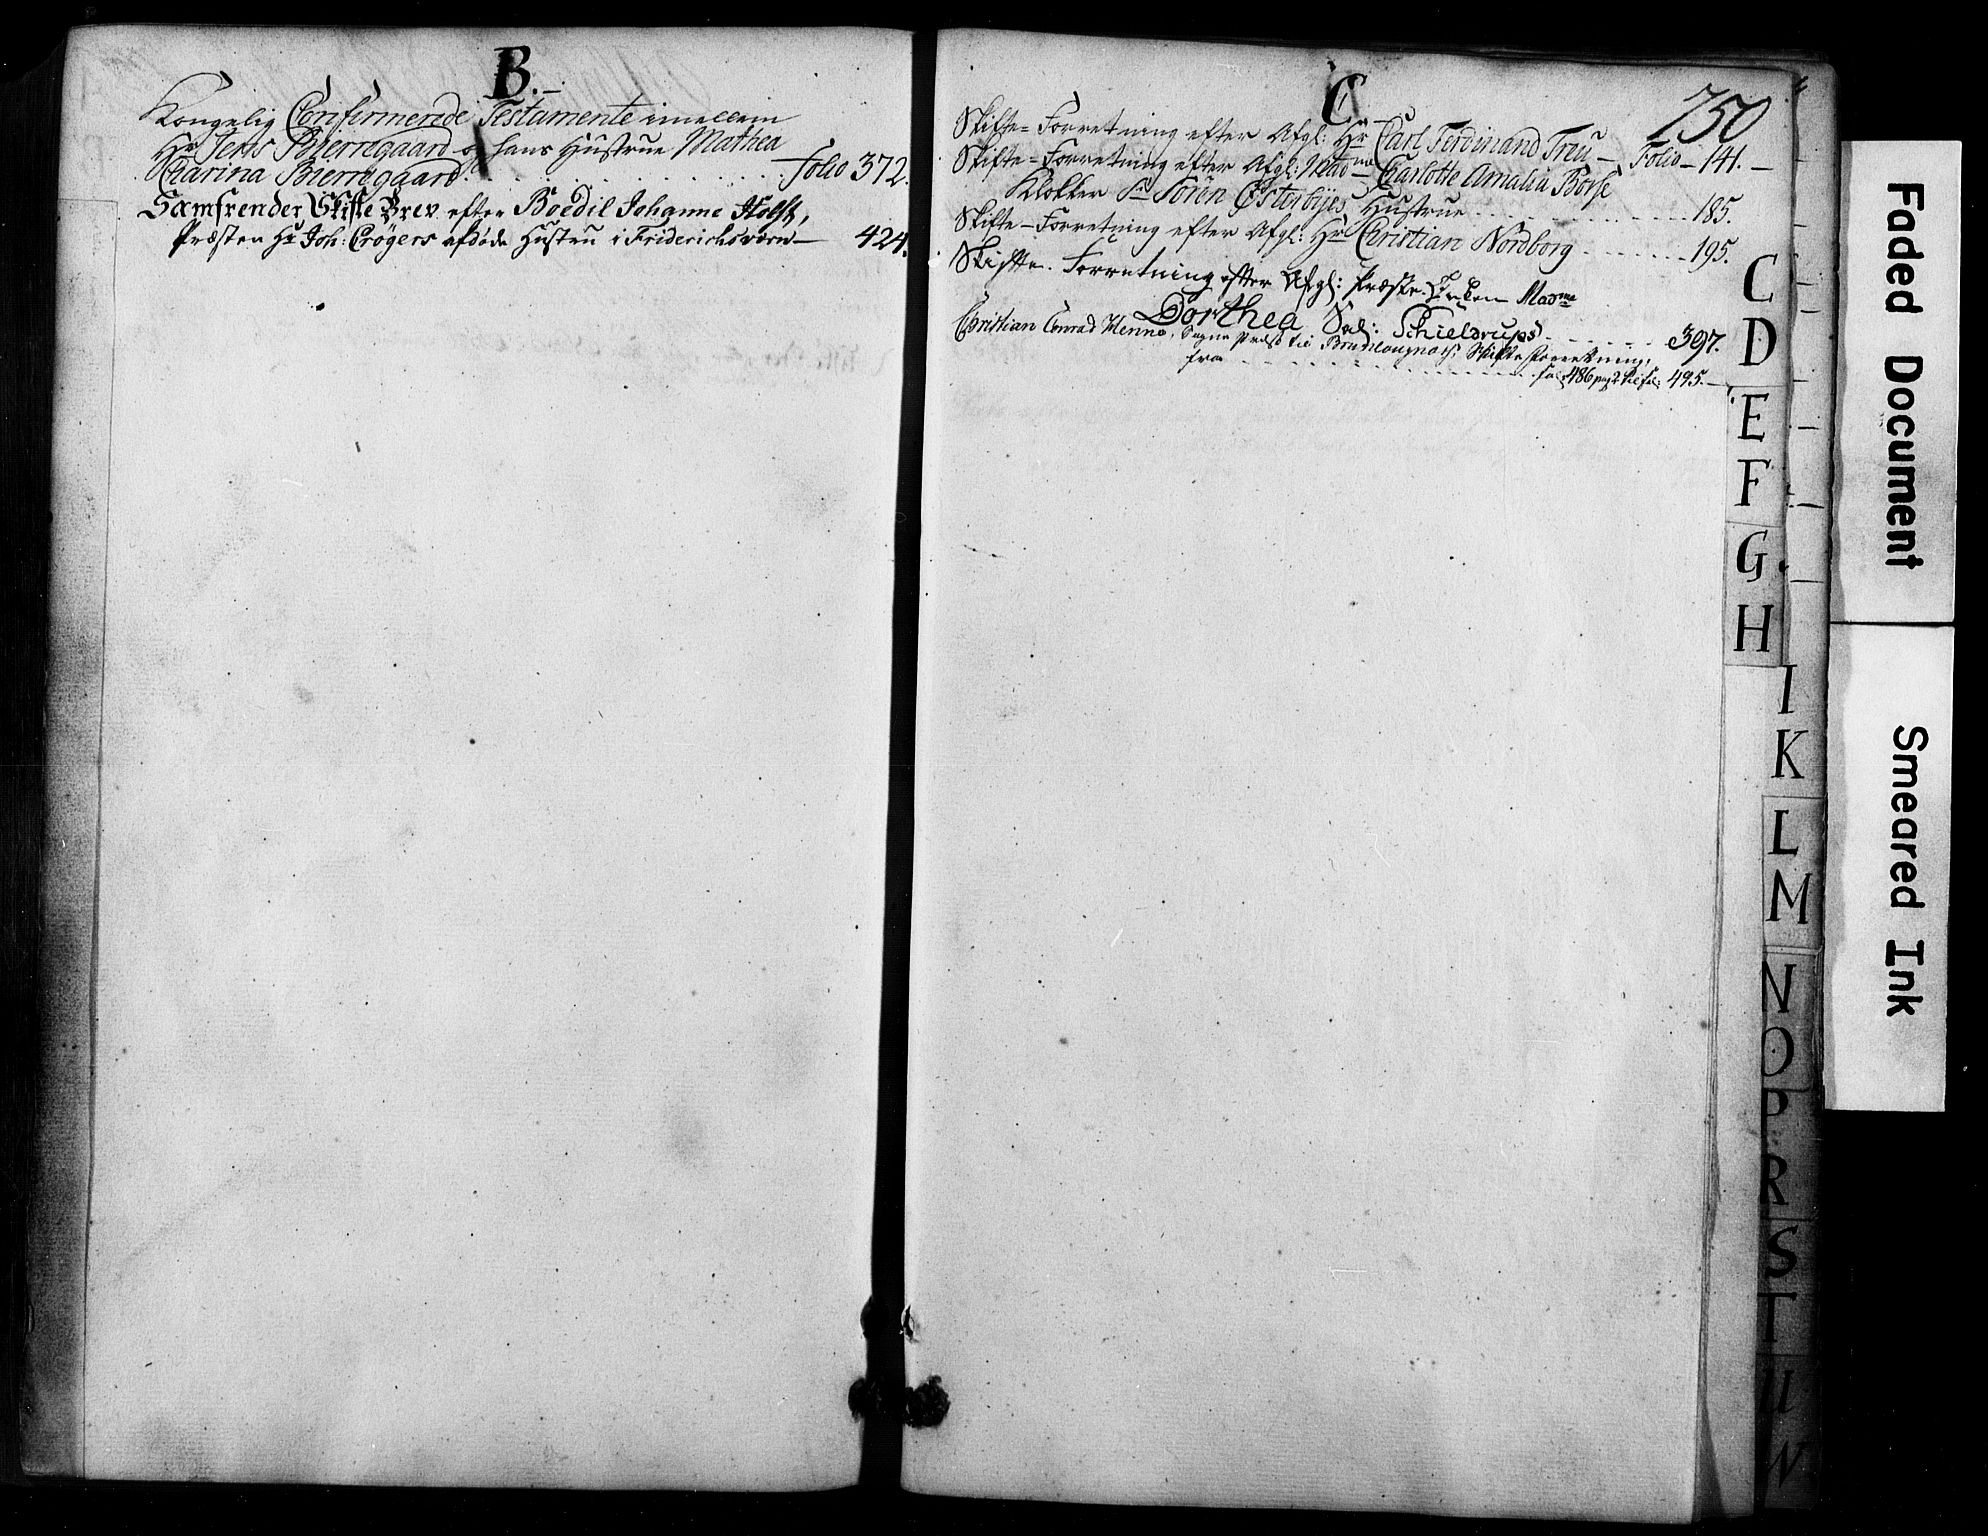 B.-
Kongelig Confirmerede Testamente imellem
Hr Jens Bierregaard og hans Hustrue Mathea
Carina Bierregaard. folio 372.
Samfrender Skifte Brev efter Boedil Johanne Holst,
Præsten Hr Joh: Crøgers afdøde Hustru i Friderichsværn — 424.
C.
750
Skifte-Forretning efter Afgl: Hr Carl Ferdinand Treu — Folio — 141. —
Skifte-Forretning efter Afgl: Mad me Charlotte Amalia Borse
Klokker Sr Sören Österbyes Hustrue 185.
Skifte-Forretning efter Afgl: Hr Christian Nordborg 195.
Skifte-Forretning efter Afgl: Præste Enken Mad me
Dorthea Sal: Schieldrups 397.
Christian Conrad Menne, Sogne Præst til Skifte Forretning,
fra fol: 486 pag 2 til fol: 495. —
C
D
E
F
G
H
I
K
L
M
N
O
P
R
S
T
U
W
Faded Document
Smeared Ink